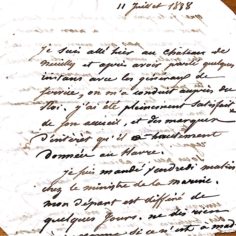 11 Juillet 1838
Je suis allé hier au Château de
Neuilly et après avoir parlé quelques
instans avec les généraux de
service, on m'a conduit auprès du
Roi. J'ai été pleinement satisfait
de son accueil, et des marques
d'intérêt qu'il a hautement
données au Havre.
Je suis mandé vendredi matin
chez le ministre de la marine.
mon départ est différé de
quelques jours. ne dis rien